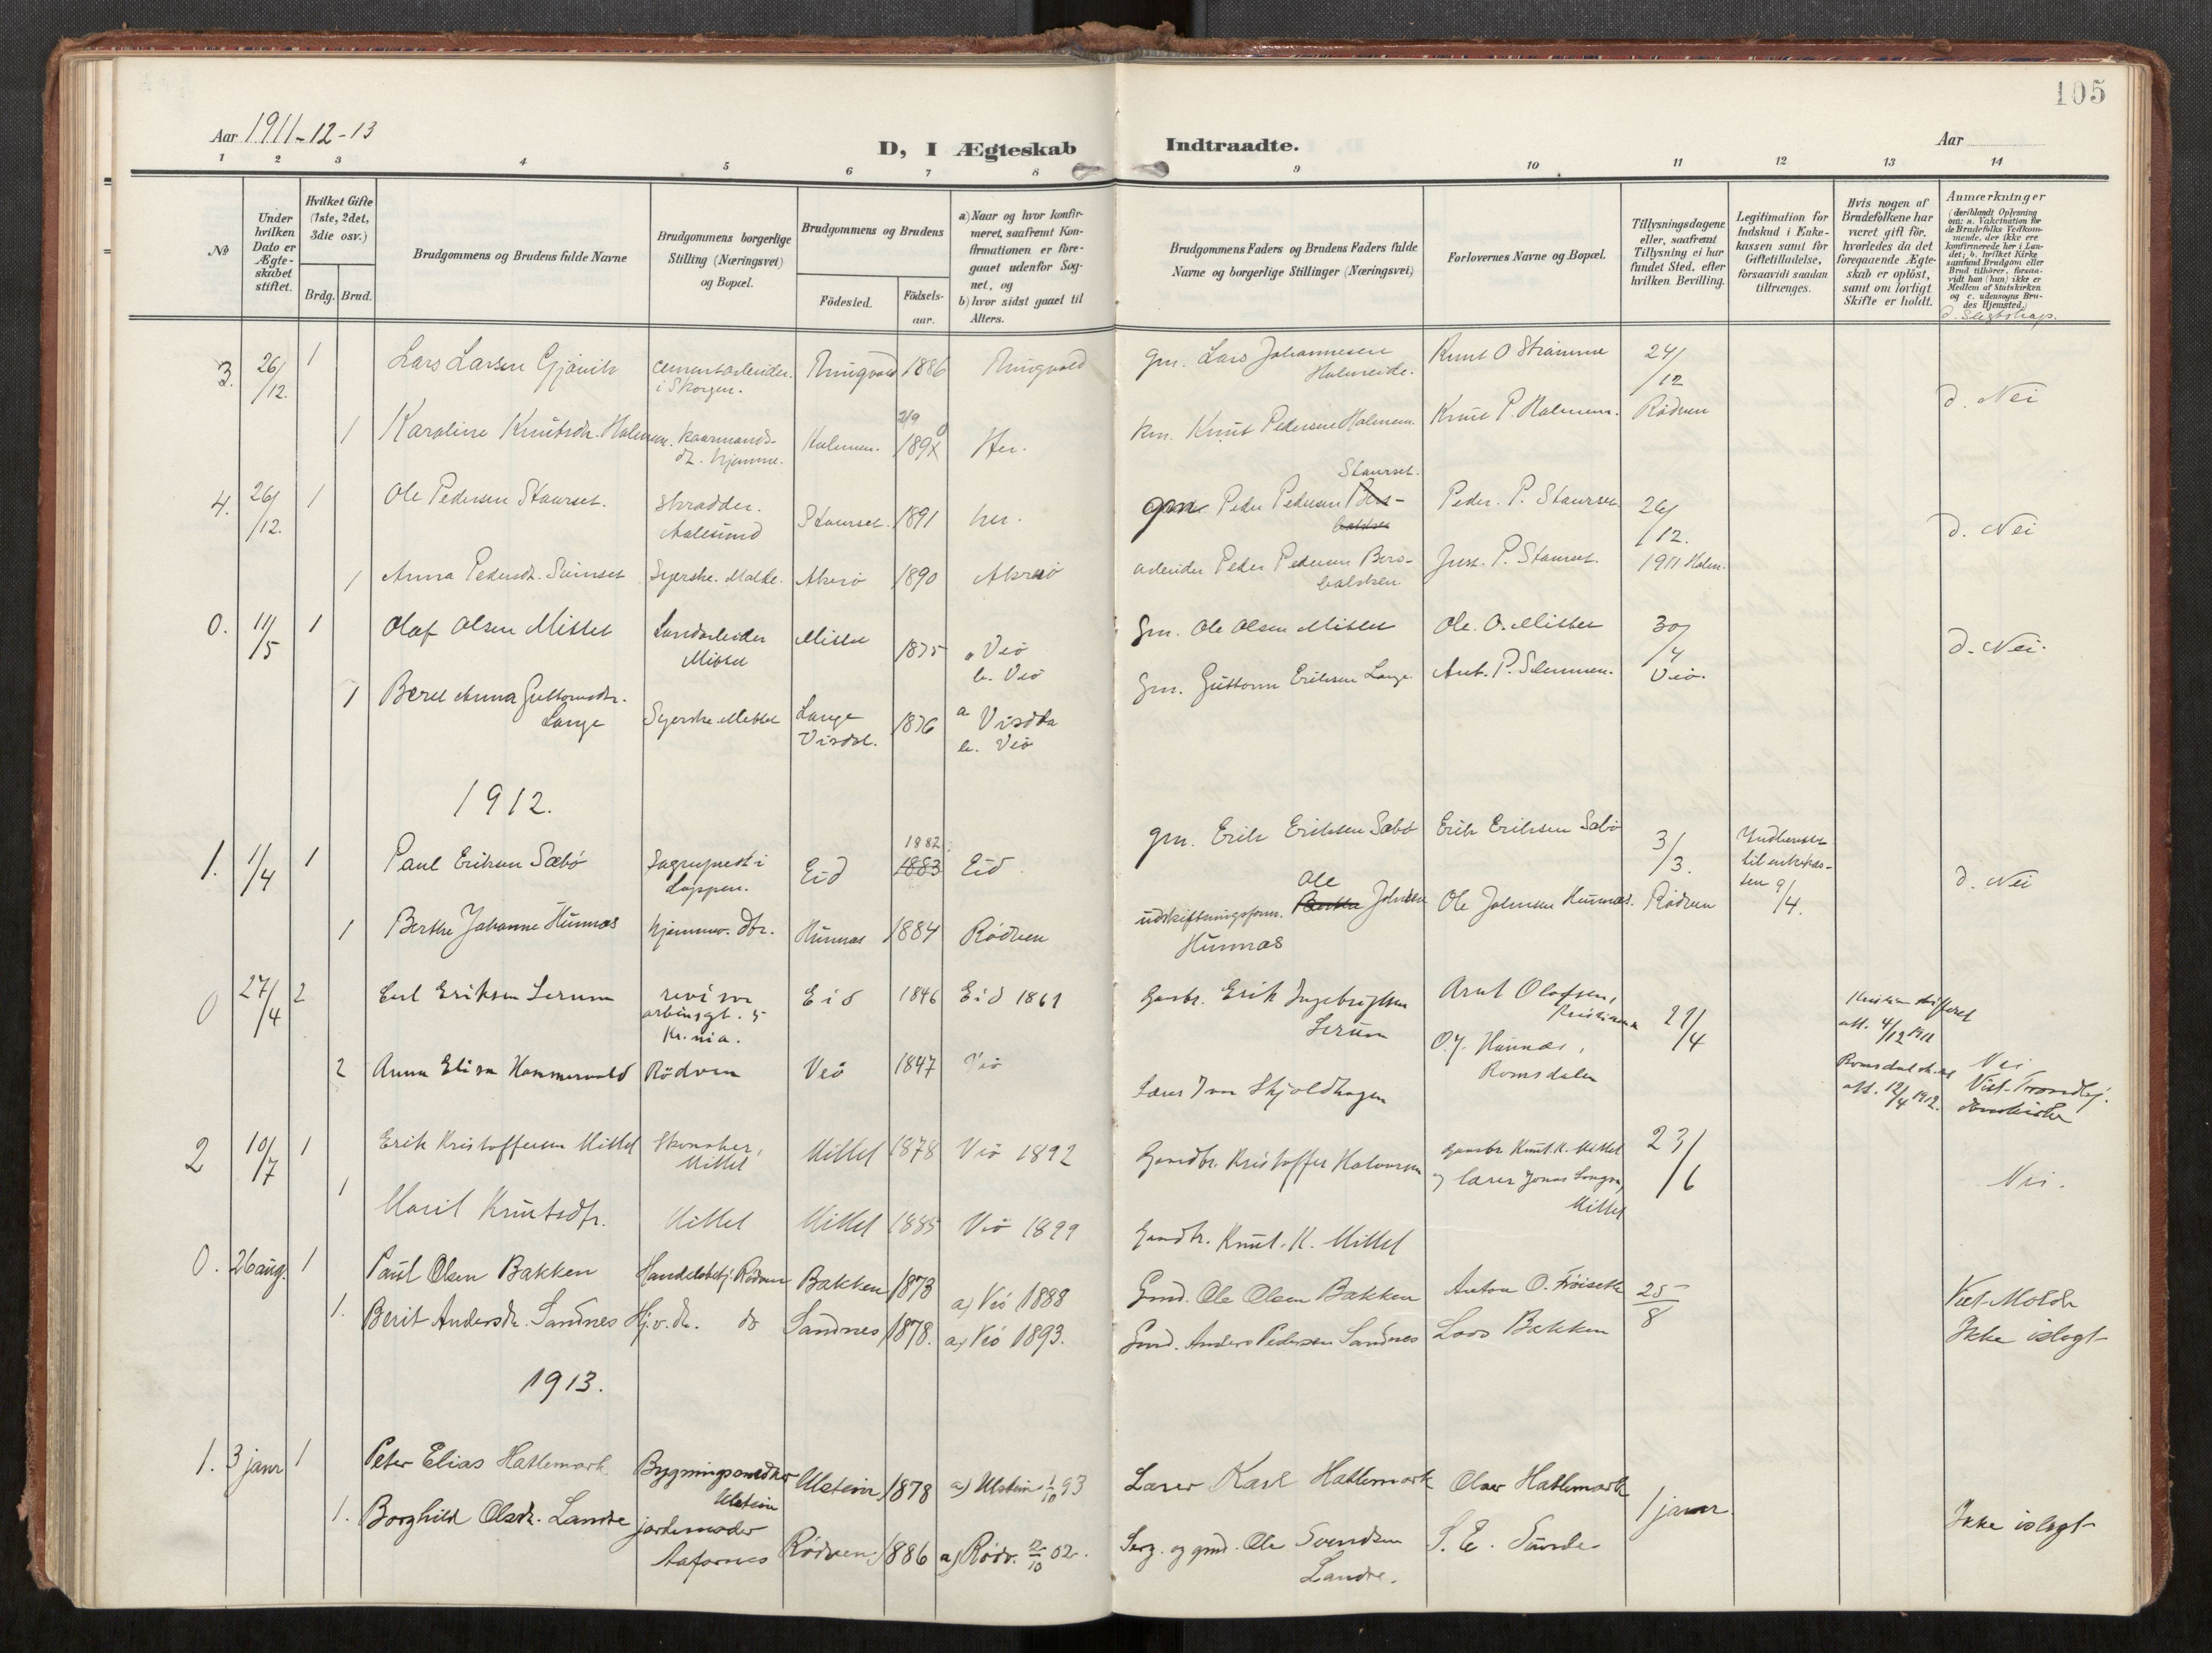 105
Aar 1911-12-13
D, I Ægteskab Indtraadte.
Aar
1 2 3 4 5 6 7 8 9 10 11 12 13 14
No
Under hvilken Dato er Ægteskabet stiftet.
Hvilket Gifte (1ste, 2det, 3die osv.)
Brdg. Brud.
Brudgommens og Brudens fulde Navne
Brudgommens borgerlige Stilling (Næringsvei) og Bopæl.
Brudgommens og Brudens
Födested.
Födselsaar.
a) Naar og hvor konfirmeret, saafremt Konfirmationen er foregaaet udenfor Sognet, og
b) hvor sidst gaaet til Alters.
Brudgommens Faders og Brudens Faders fulde Navne og borgerlige Stillinger (Næringsvei)
Forlovernes Navne og Bopæl.
Tillysningsdagene eller, saafremt Tillysning ei har fundet Sted, efter hvilken Bevilling.
Legitimation for Indskud i Enkekassen samt for Giftetilladelse, forsaavidt saadan tiltrænges.
Hvis nogen af Brudefolkene har været gift för, hvorledes da det foregaaende Ægteskab er oplöst, samt om lovligt Skifte er holdt.
Anmærkninger
(deriblandt Oplysning om: a. Vakcination for de Brudefolks Vedkommende, der ikke ere konfirmerede her i Landet; b. hvilket Kirkesamfund Brudgom eller Brud tilhörer, forsaavidt han (hun) ikke er Medlem af Statskirken og c. udensogns Brudes Hjemsted.)
d. Slegtskap.
3. 26/12. 1 Lars Larsen Gjövik 1886 gm. Lars Johannesen Knut O Stramme 24/12
i Skorgen.
d. Nei
1 Karoline Knutsdr. Holmem. Kaarmands- Holmem. 2/9 189 Her. Knut Pedersen Holmem. Knut P. Holmem. Rödven
dt. hjemme.
4. 26/12. 1 Ole Pedersen Staurset. Skradder. Staurset. 1891 her. gm. Peder Pedersen Staurset. Peder. P. Staurset 26/12.
Aalesund
d. Nei
1 Anna Pedersdt. Syerske. Molde. Akerö 1890 Akerö arbeider Peder Pedersen P. Staurset. 1911 Holm.
0. 11/5 1 Olaf Olsen Mittet Landarbeider Mittet 1875 a Veö gm. Ole Olsen Mittet Ole. O. Mittet 30/4
Mittet b. Veö
d. Nei.
1 Beret Anna Guttormsdtr. Syerske Mittet Lange 1876 a Visdal gm. Guttorm Eriksen Lange Ant. P. Veö.
Lange Visdal. b. Veö
1912.
1. 11/4 1 Paul Eriksen Sæbö Sogneprest i Eid 1882 1883 Eid gm. Erik Eriksen Sæbö Erik Eriksen Sæbö 3/3.
Loppen.
til enkekas-
sen 9/4.
d. Nei
1 Berthe Johanne Hunnæs hjemmev. dtr. Hunnæs 1884 Rödven udskiftningsform. Berthe Ole Johnsen Ole Johnsen Hunnæs. Rödven
Hunnæs
0 27/4 2 Eriksen Eid 1846 Eid 1861 Gaardbr. Erik Ingebrigtsen Arnt Olafsen, 21/4
Kr.nia. Kristiania
O.J. Hunnæs,
Romsdalen
att. 4/12 1911
2 Anna Elisa Hammervold Rödven Veö 1847 Veö Lærer Iver Skjoldhagen
att. 12/4 1912.
Nei
Vist. Trondhj.
domkirke
2 10/7 1 Erik Kristoffersen Mittet Skomaker, Mittet 1878 Veö 1892 Gaardbr. Kristoffer Halvorsen Gaardbr. Knut. K. Mittet 23/6
Mittet
og lærer Jonas
Mittet
Nei.
1 Marit Knutsdtr. Mittet Mittet 1885 Veö 1899 Gaardbr. Knut. K. Mittet
0. 26 aug. 1 Paul Olsen Bakken Handelsbetj. Rödven Bakken 1873 a) Veö 1888 Gmd. Ole Olsen Bakken Anton O. Fröiseth 25/8
Viet Molde
1. Berit Andersdt. Sandnes Hj.v. dt. do Sandnes 1878. a) Veö 1893. Gmd. Anders Pedersen Sandnes Lars Bakken
Ikke i slegt
1913.
1. 3 janr 1 Peter Elias Hatlemark Bygningssnedker Ulstein 1878 a) Ulstein 1/10 93 Lærer Karl Hatlemark Olav Hatlemark 1 janr.
Ulstein
1. Borghild Olsdt. Landre jordemoder Rödven 1886 a) Rödv. 12/10 02. Serg. og gmd. Ole Svendsen S. E. Sunde
Aafarnes Landre.
Ikke i slegt